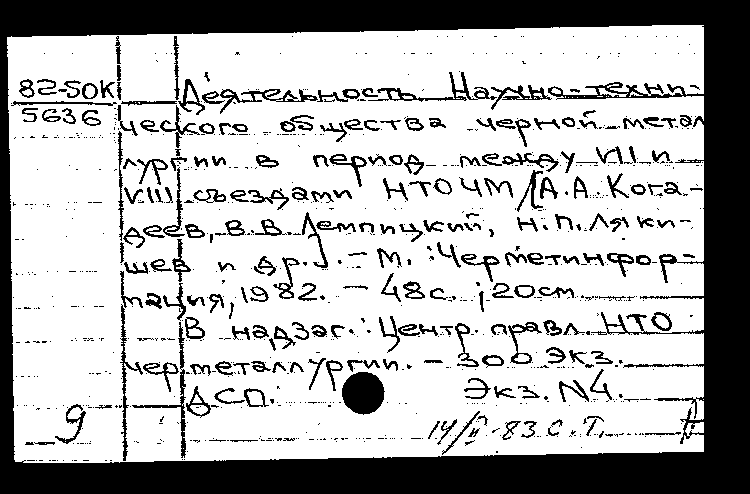 82-5ОК Деятельность Научно-техни-
5636 ческого общества черной метал
лургии в период между VII и
VIII съездами НТОЧМ /[А.А. Кога-
деев, В.В. Лемпицкий, Н.П. Ляки-
шев и др.]. – М. : Черметинфор-
мация, 1982. – 48с. ; 20см
В надзаг.: Центр. правл. НТО
чер.металлургии. – 300 экз.
ДСП. Экз. N4.
9 14/II-83 С.Т.